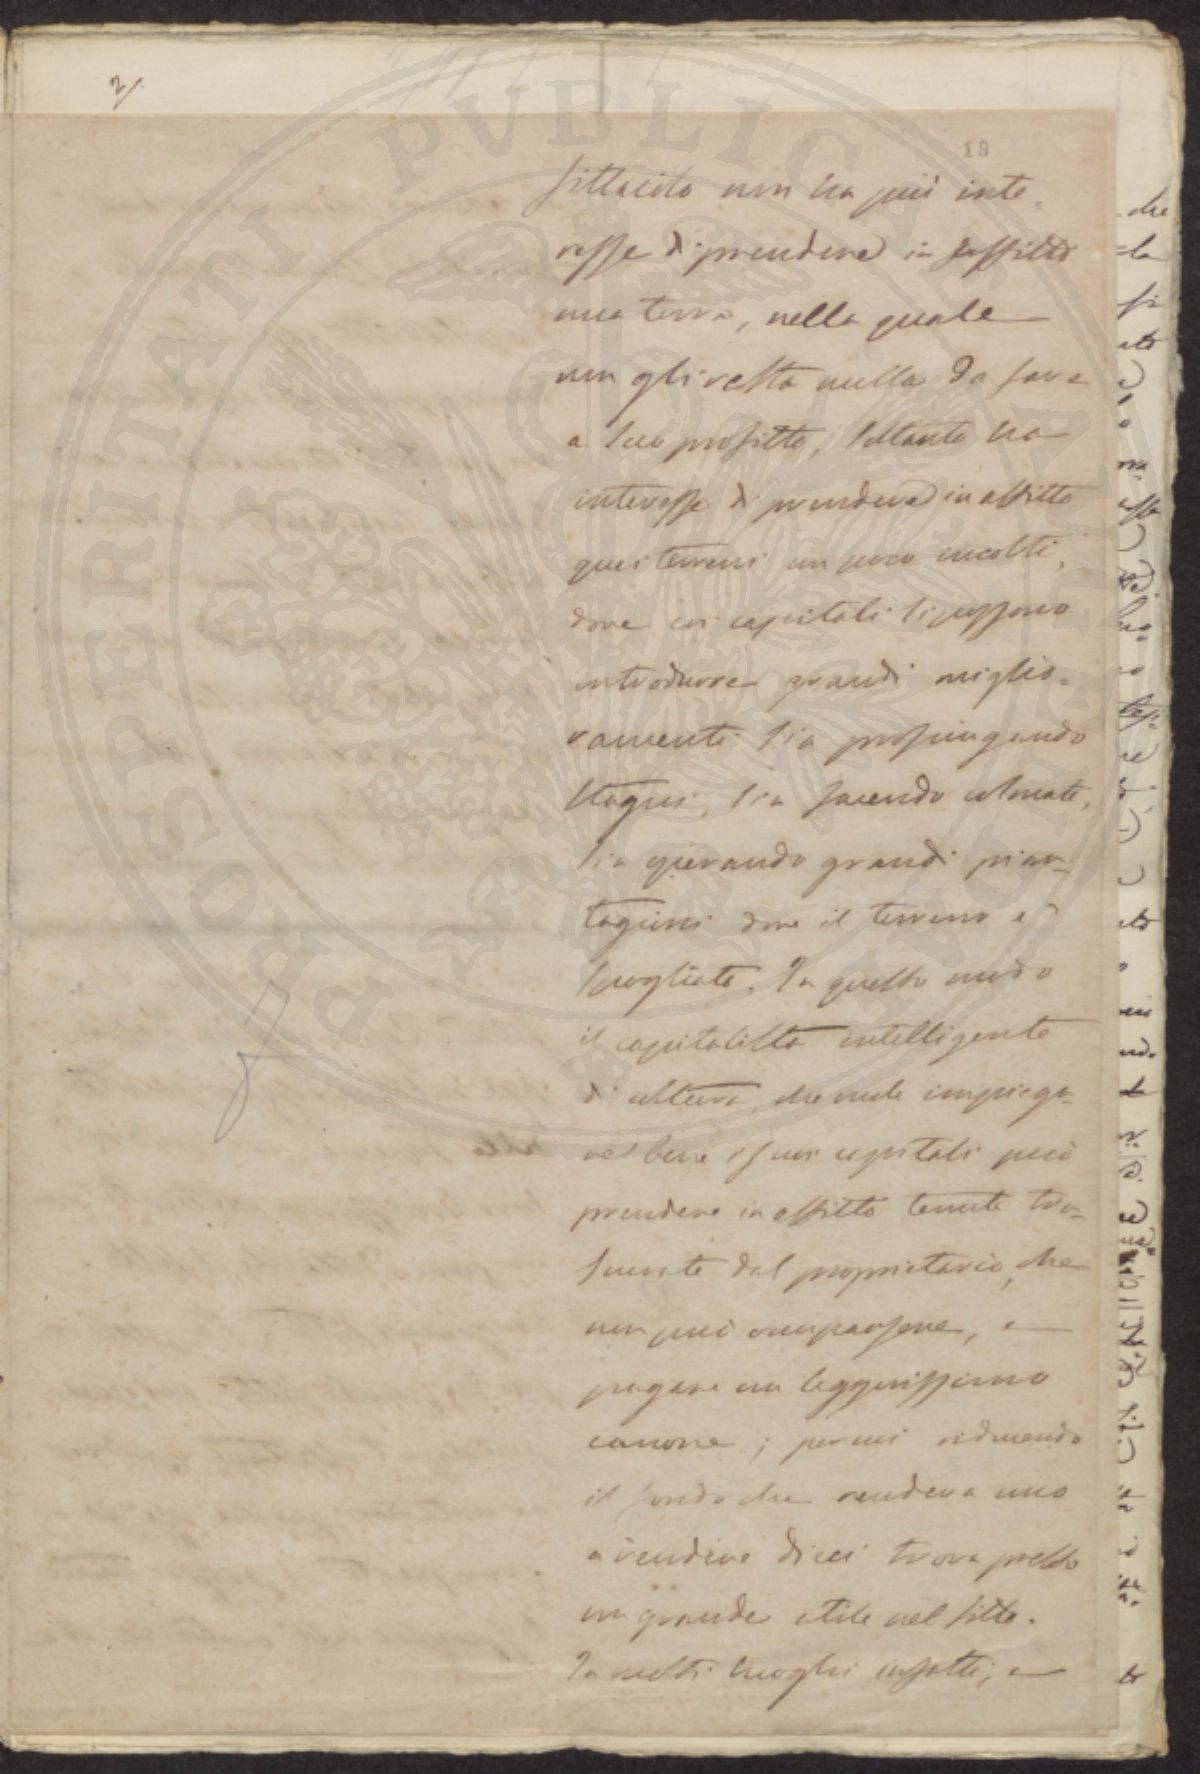 2/.
19
fittaiolo non ha più inte-
resse di prendere in affitto
una terra, nella quale
non gli resta nulla da fare
a suo profitto, soltanto ha
interesse di prendere in affitto
quei terreni un poco incolti,
dove coi capitali si possono
introdurre grandi miglio-
ramenti sia prosciugando
stagni, sia facendo colmate,
sia operando grandi pian-
tagioni dove il terreno è
spogliato. In questo modo
il capitalista intelligente
di coltura, che vuole impiega-
re bene i suoi capitali può
prendere in affitto tenute tra-
scurate dal proprietario, che
non può occuparsene, e
pagare un leggerissimo
canone; per cui riducendo
il fondo che rendeva uno
a rendere dieci trova presto
un grande utile nel fitto.
In molti luoghi infatti, e
PROSPERITATI PVBLICAE